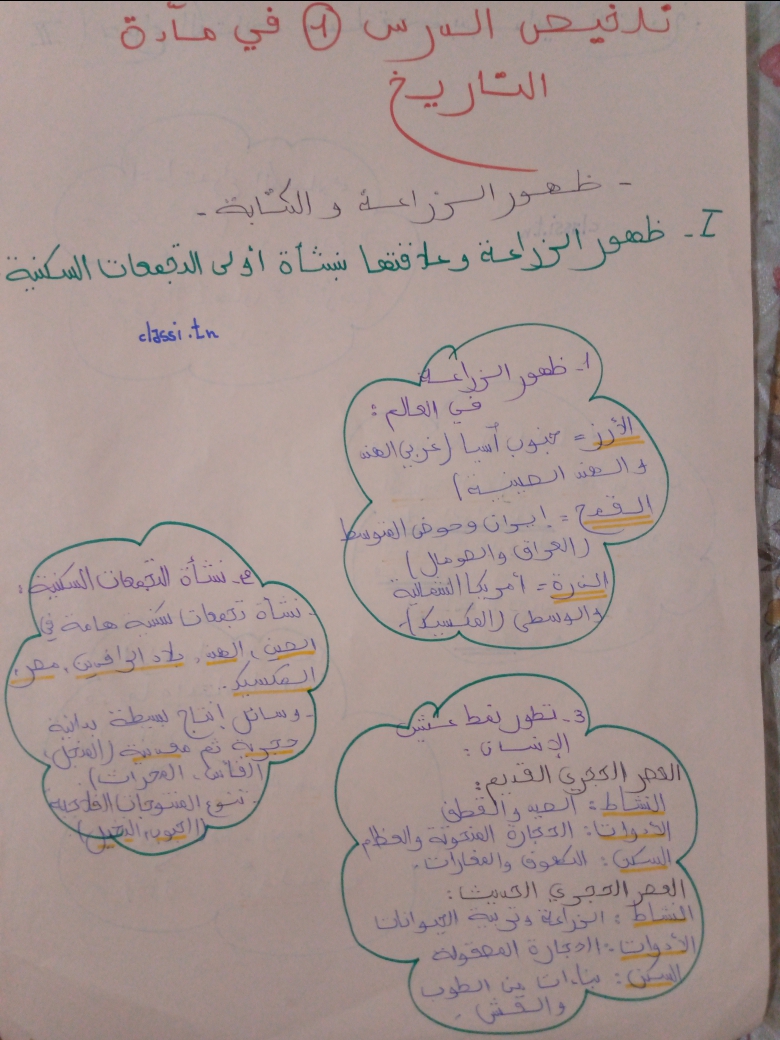 تلخيص الدرس ① في مادّة
التاريخ
- ظهور الزراعة و الكتابة -
I - ظهور الزراعة وعلاقتها بنشأة أولى التجمعات السكنية
classi.tn
1 - ظهور الزراعة
في العالم :
الأرز = جنوب آسيا (غربي الهند
و الهند الصينية)
القمح = إيران وحوض المتوسط
(العراق والصومال)
الذرة = أمريكا الشمالية
والوسطى (المكسيك)
2 - نشأة التجمعات السكنية :
- نشأة تجمعات سكنية هامة في
الصين ، الهند ، بلاد الرافدين ، مصر ،
المكسيك .
- وسائل إنتاج بسيطة بدائية
حجرية ثم معدنية (المنجل ،
الفأس ، المحراث)
- تنوع المنتوجات الفلاحية
(الحبوب ، النخيل)
3 - تطور نمط عيش
الإنسان :
العصر الحجري القديم :
النشاط : الصيد والقطف
الأدوات : الحجارة المنحوتة والعظام
السكن : الكهوف والمغارات .
العصر الحجري الحديث :
النشاط : الزراعة وتربية الحيوانات
الأدوات : الحجارة المصقولة
السكن : بناءات من الطوب
والقش .